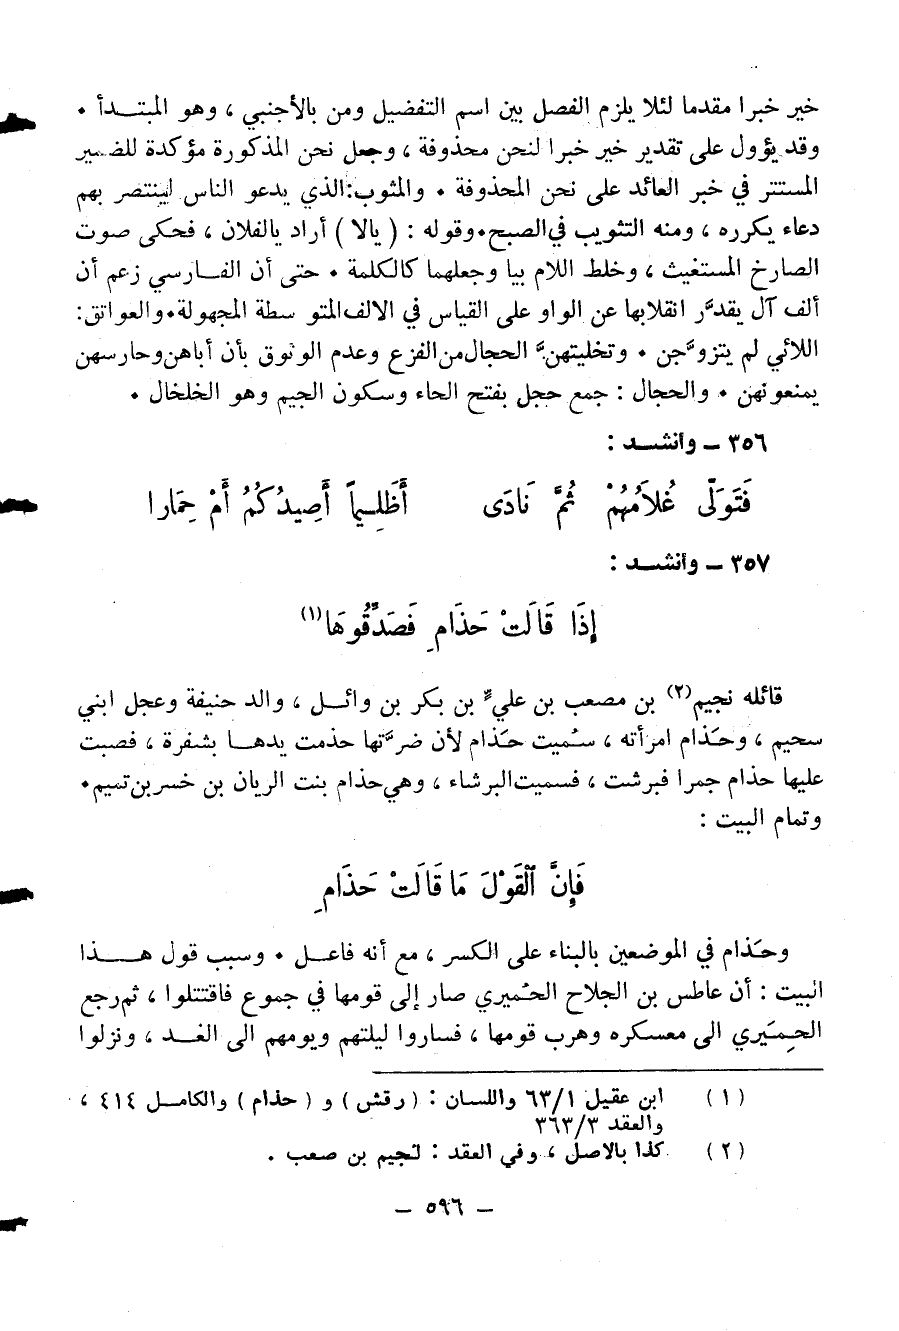 خير خبرا مقدما لئلا يلزم الفصل بين اسم التفضيل ومن بالأجنبي ، وهو المبتــدأ ٠
وقد يؤول على تقدير خير خبرا لنحن محذوفة ، وجعل نحن المذكورة مؤكدة للضمير
المستتر في خبر العائد على نحن المحذوفة ٠ والمثوب:الذي يدعو الناس لينتصر بهم
دعاء يكرره ، ومنه التثويب في الصبح٠وقوله : ( يالا ) أراد يالفلان ، فحكى صوت
الصارخ المستغيث ، وخلط اللام بيا وجعلهما كالكلمة ٠ حتى أن الفــارسي زعم أن
ألف آل يقدَّر انقلابها عن الواو على القياس في الالف المتو سطة المجهولة٠والعواتق:
اللائي لم يتزوَّجن ٠ وتخليتهنَّ الحجال من الفزع وعدم الوثوق بأن أباهن وحارسهن
يمنعونهن ٠ والحجال : جمع حجل بفتح الحاء وسكون الجيم وهو الخلخال ٠
٣٥٦ ــ وأنشــد :
فَتَوَلَّى غُلَامُهُمْ ثُمَّ نَادَى أَظَلِــيماً أَصِيدُكُمُ أَمْ حِمَارا
٣٥٧ ــ وأنشــد :
إِذَا قَالَتْ حَذَامِ فَصَدِّقُوهَا(١)
قائله نجيم(٢) بن مصعب بن عليّ بن بكر بن وائــل ، والد حنيفة وعجل ابني
سحيم ، وحَذام امرأته ، سُميت حَذام لأن ضرَّتها حذمت يدهــا بشفرة ، فصبت
عليها حذام جمرا فبرشت ، فسميت البرشاء ، وهي حذام بنت الريان بن خسر بن تميم٠
وتمام البيت :
فَإِنَّ الْقَوْلَ مَا قَالَتْ حَذَامِ
وحَذام في الموضعين بالبناء على الكسر ، مع أنه فاعــل ٠ وسبب قول هــــذا
البيت : أن عاطس بن الجلاح الحُميري صار إلى قومها في جموع فاقتتلوا ، ثم رجع
الحِمَيري الى معسكره وهرب قومها ، فساروا ليلتهم ويومهم الى الغــد ، ونزلوا
(١) ابن عقيل ٦٣/١ واللسان : ( رقش ) و ( حذام ) والكامــل ٤١٤ ،
والعقد ٣٦٣/٣
(٢) كذا بالاصل ، وفي العقد : لجيم بن صعب .
ــ ٥٩٦ ــ